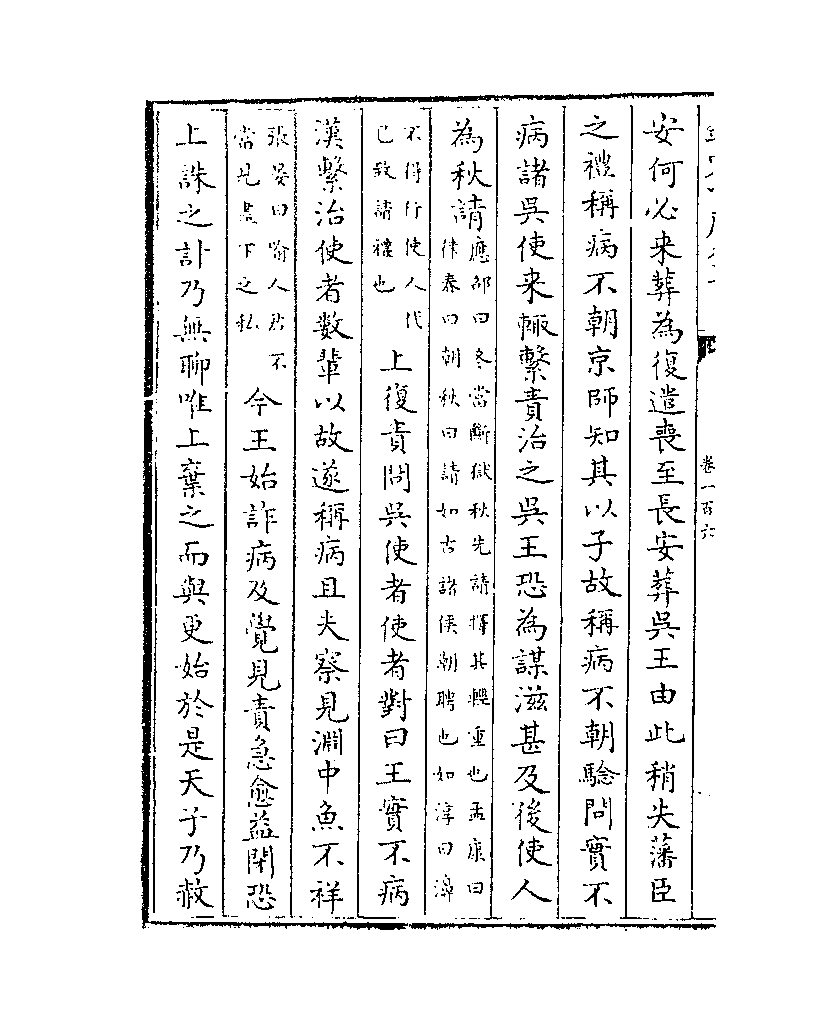 卷一百六
安何必来葬為復遣喪至長安葬吳王由此稍失藩臣
之禮稱病不朝京師知其以子故稱病不朝驗問實不
病諸吳使来輙繫責治之吳王恐為謀滋甚及後使人
為秋請應劭曰冬當斷獄秋先請擇其輕重也孟康曰
律春曰朝秋曰請如古諸侯朝聘也如淳曰濞
不得行使人代
己致請禮也上復責問吳使者使者對曰王實不病
漢繫治使者數輩以故遂稱病且夫察見淵中魚不祥
張晏曰喻人君不
當見盡下之私今王始詐病及覺見責急愈益閉恐
上誅之計乃無聊唯上棄之而與更始於是天子乃赦